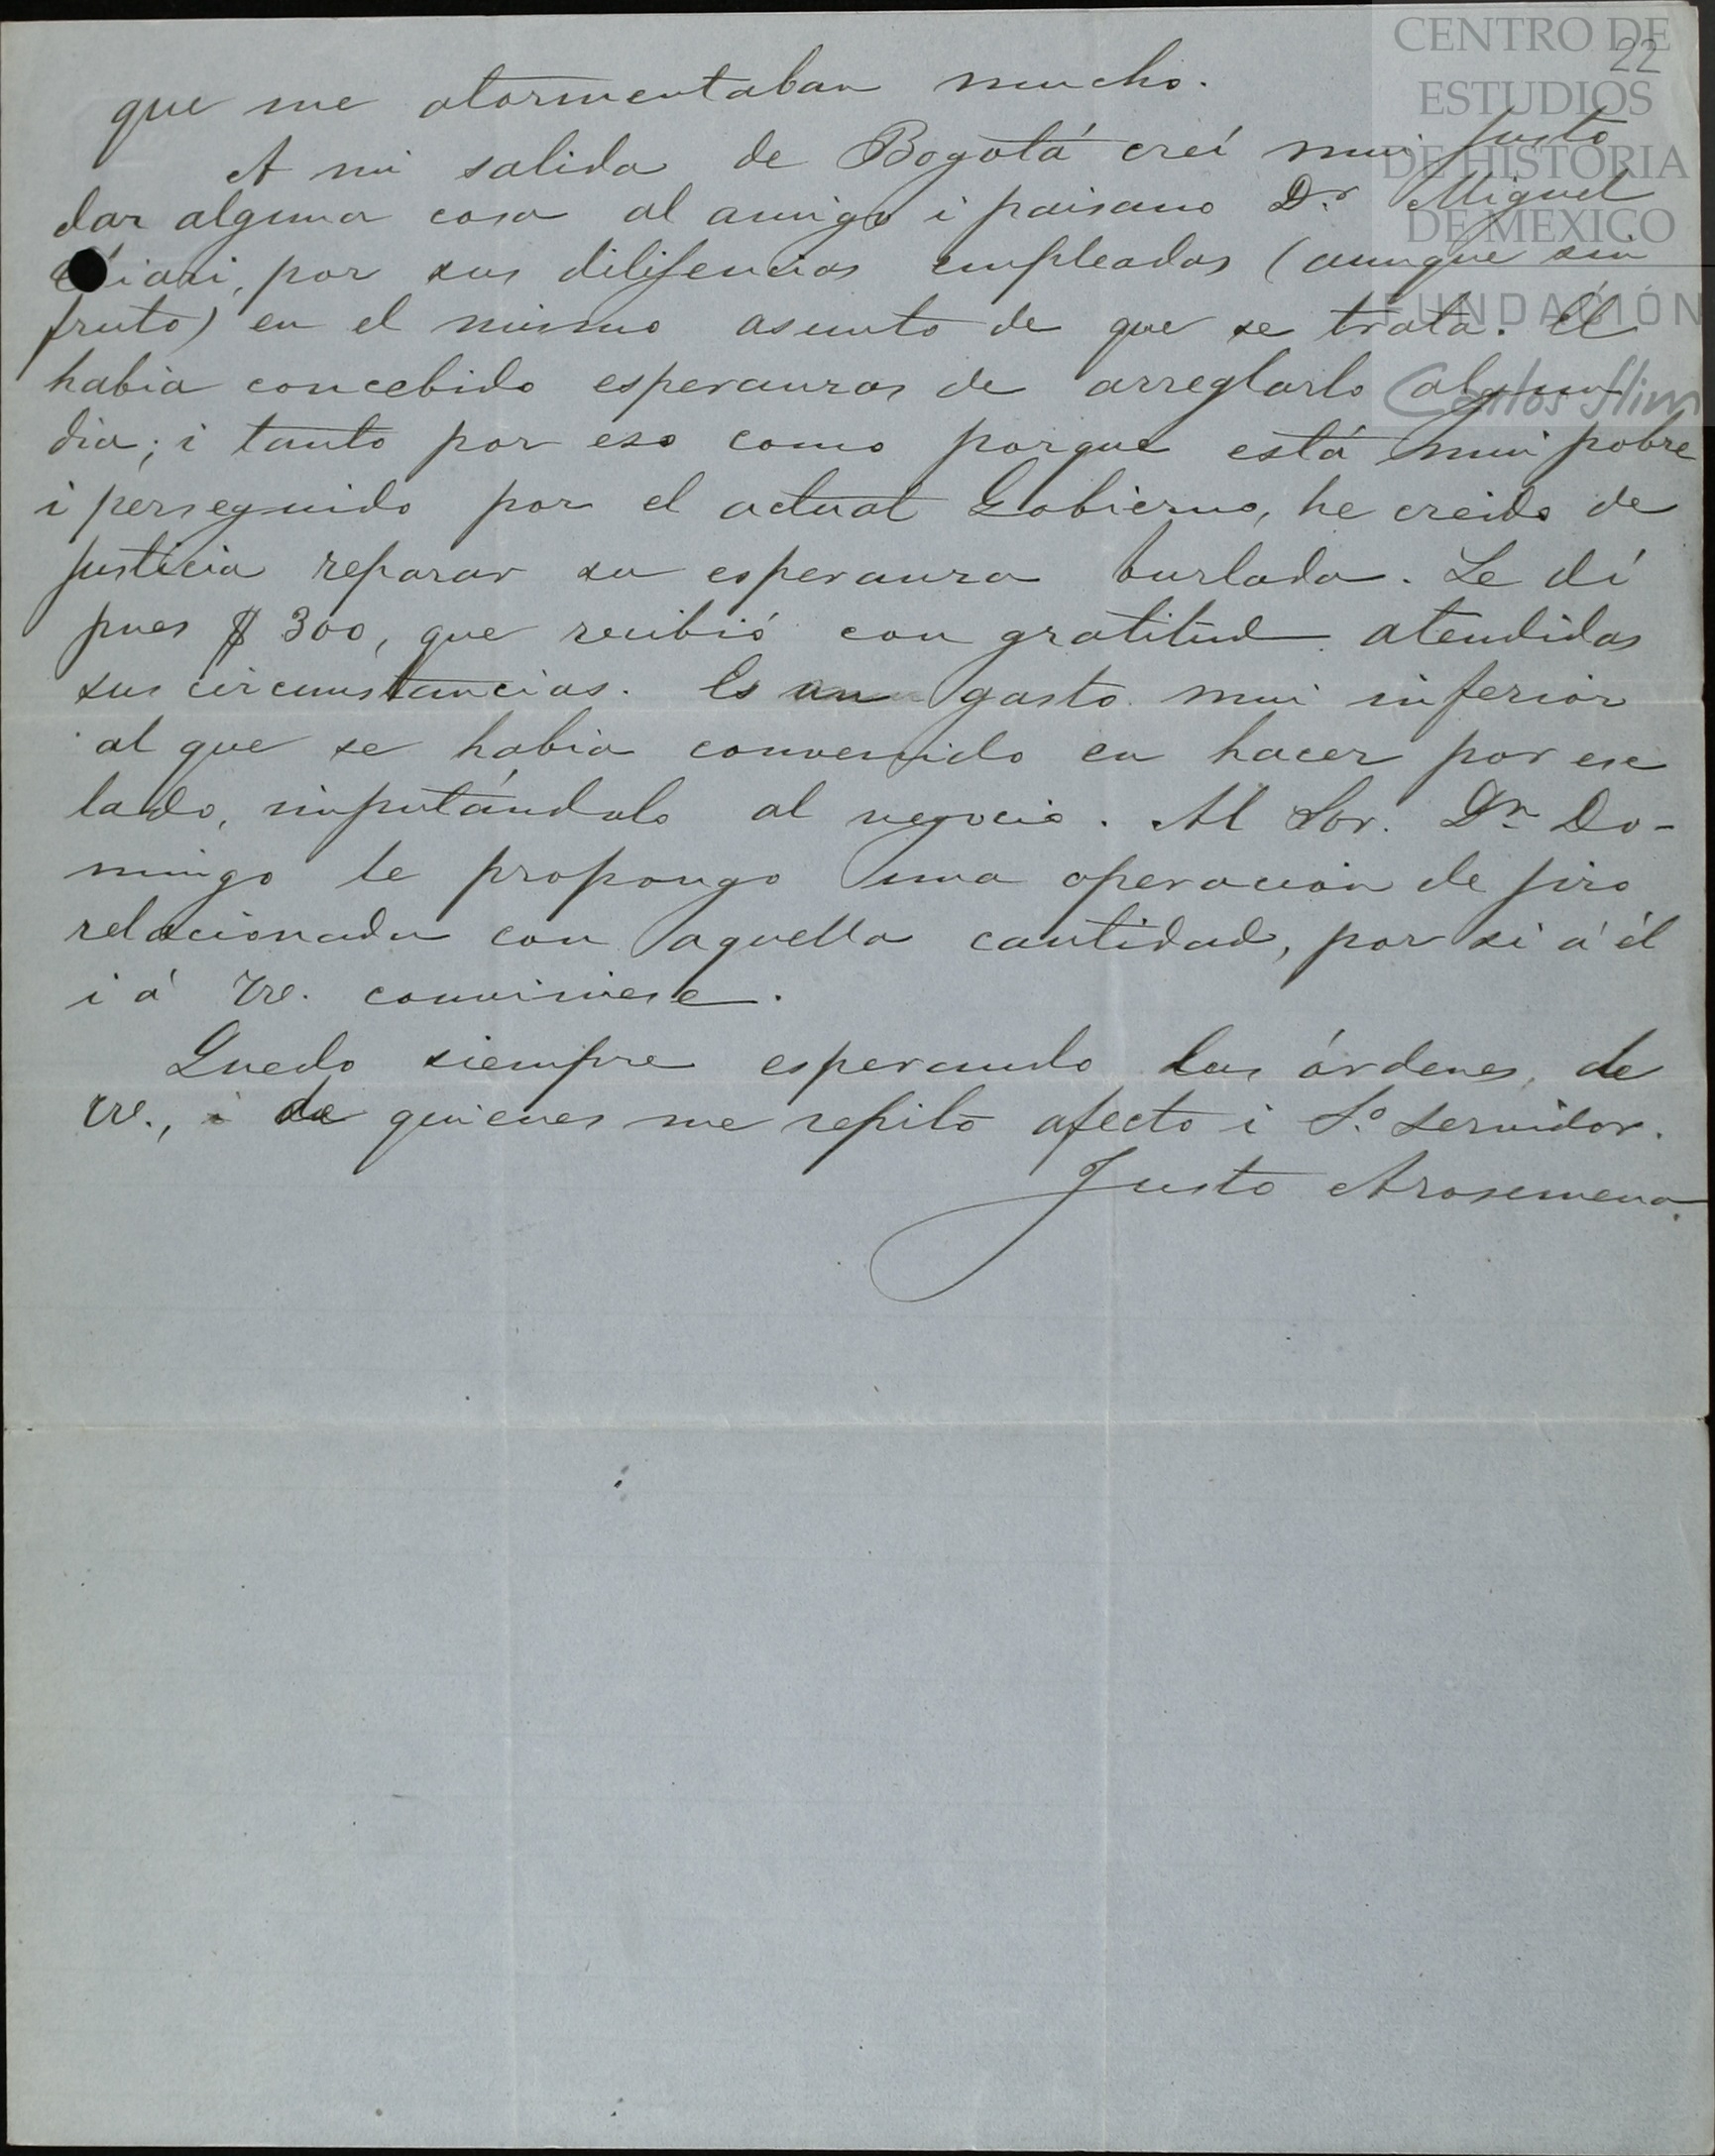 CENTRO DE
ESTUDIOS
DE HISTORIA
DE MEXICO
FUNDACIÓN
Carlos Slim
22
que me atormentaban mucho.
A mi salida de Bogotá creí mui justo
dar alguna cosa al amigo i paisano Dr. Miguel
iari, por sus dilijencias empleadas (aunque sin
fruto) en el mismo asunto de que se trata. El
habia concebido esperanzas de arreglarlo algun
dia; i tanto por eso como porque está mui pobre
i perseguido por el actual Gobierno, he creido de
justicia reparar su esperanza burlada. Le dí
pues $ 300, que recibió con gratitud atendidas
sus circunstancias. Es un gasto mui inferior
al que se habia convenido en hacer por ese
lado, imputándolo al negocio. Al Sor. Dn Do-
mingo le propongo una operacion de jiro
relacionada con aquella cantidad, por si á él
i á VV. conviniese.
Quedo siempre esperando las órdenes de
VV., i de quienes me repito afecto i S.º servidor.
Justo Arosemena.